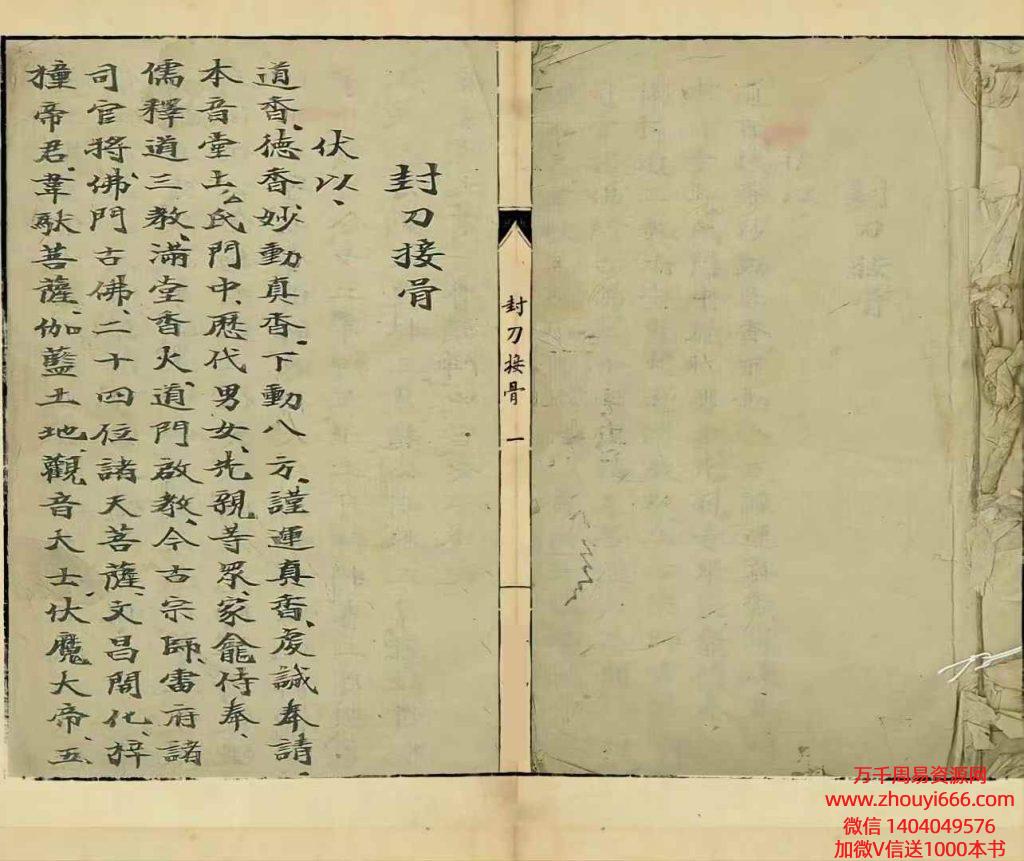 封刀接骨
伏以、
道香、德香、妙動真香、下動八方、謹運真香、虔誠奉請、
本音堂上、厶氏門中、歷代男女、先親等眾、家龕侍奉、
儒釋道三教、滿堂香火、道門啟教、今古宗師、雷府諸
司官將、佛門古佛、二十四位諸天菩薩、文昌開化、梓
橦帝君、韋馱菩薩、伽藍土地、觀音大士、伏魔大帝、五
封刀接骨 一
万千周易资源网
www.zhouyi666.com
微信 1404049576
加微V信送1000本书